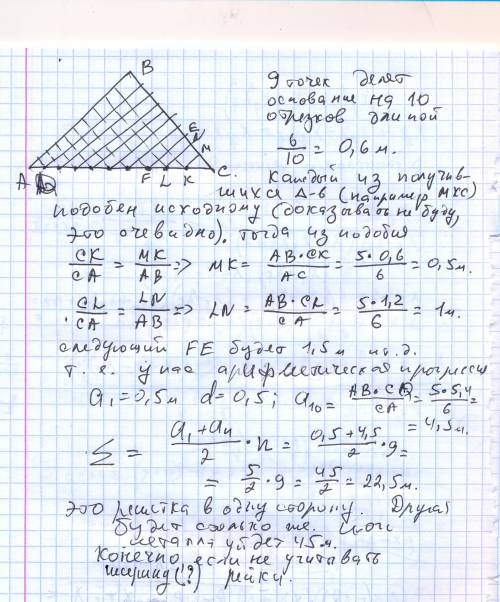 B
9 точек делят
основание на 10
отрезков длиной
6/10 = 0,6 м.
E
N
M
A D F L K C.
Каждый из получив-
шихся Δ-в (например MKC)
подобен исходному (доказывать не буду,
это очевидно). Тогда из подобия
CK/CA = MK/AB => MK = AB·CK/AC = 5·0,6/6 = 0,5м.
CL/CA = LN/AB => LN = AB·CL/CA = 5·1,2/6 = 1м.
следующий FE будет 1,5м и т.д.
Т.е. у нас арифметическая прогрессия
a₁=0,5м d=0,5; a₁₀= AB·CD/CA = 5·5,4/6 =
= 4,5м.
Σ = a₁+aₙ/2 · n = 0,5+4,5/2 · 9=
= 5/2 · 9 = 45/2 = 22,5м.
это решетка в одну сторону. Другая
будет столько же. Итого
металла уйдет 45м.
Конечно, если не учитывать
ширину(?) рейки.